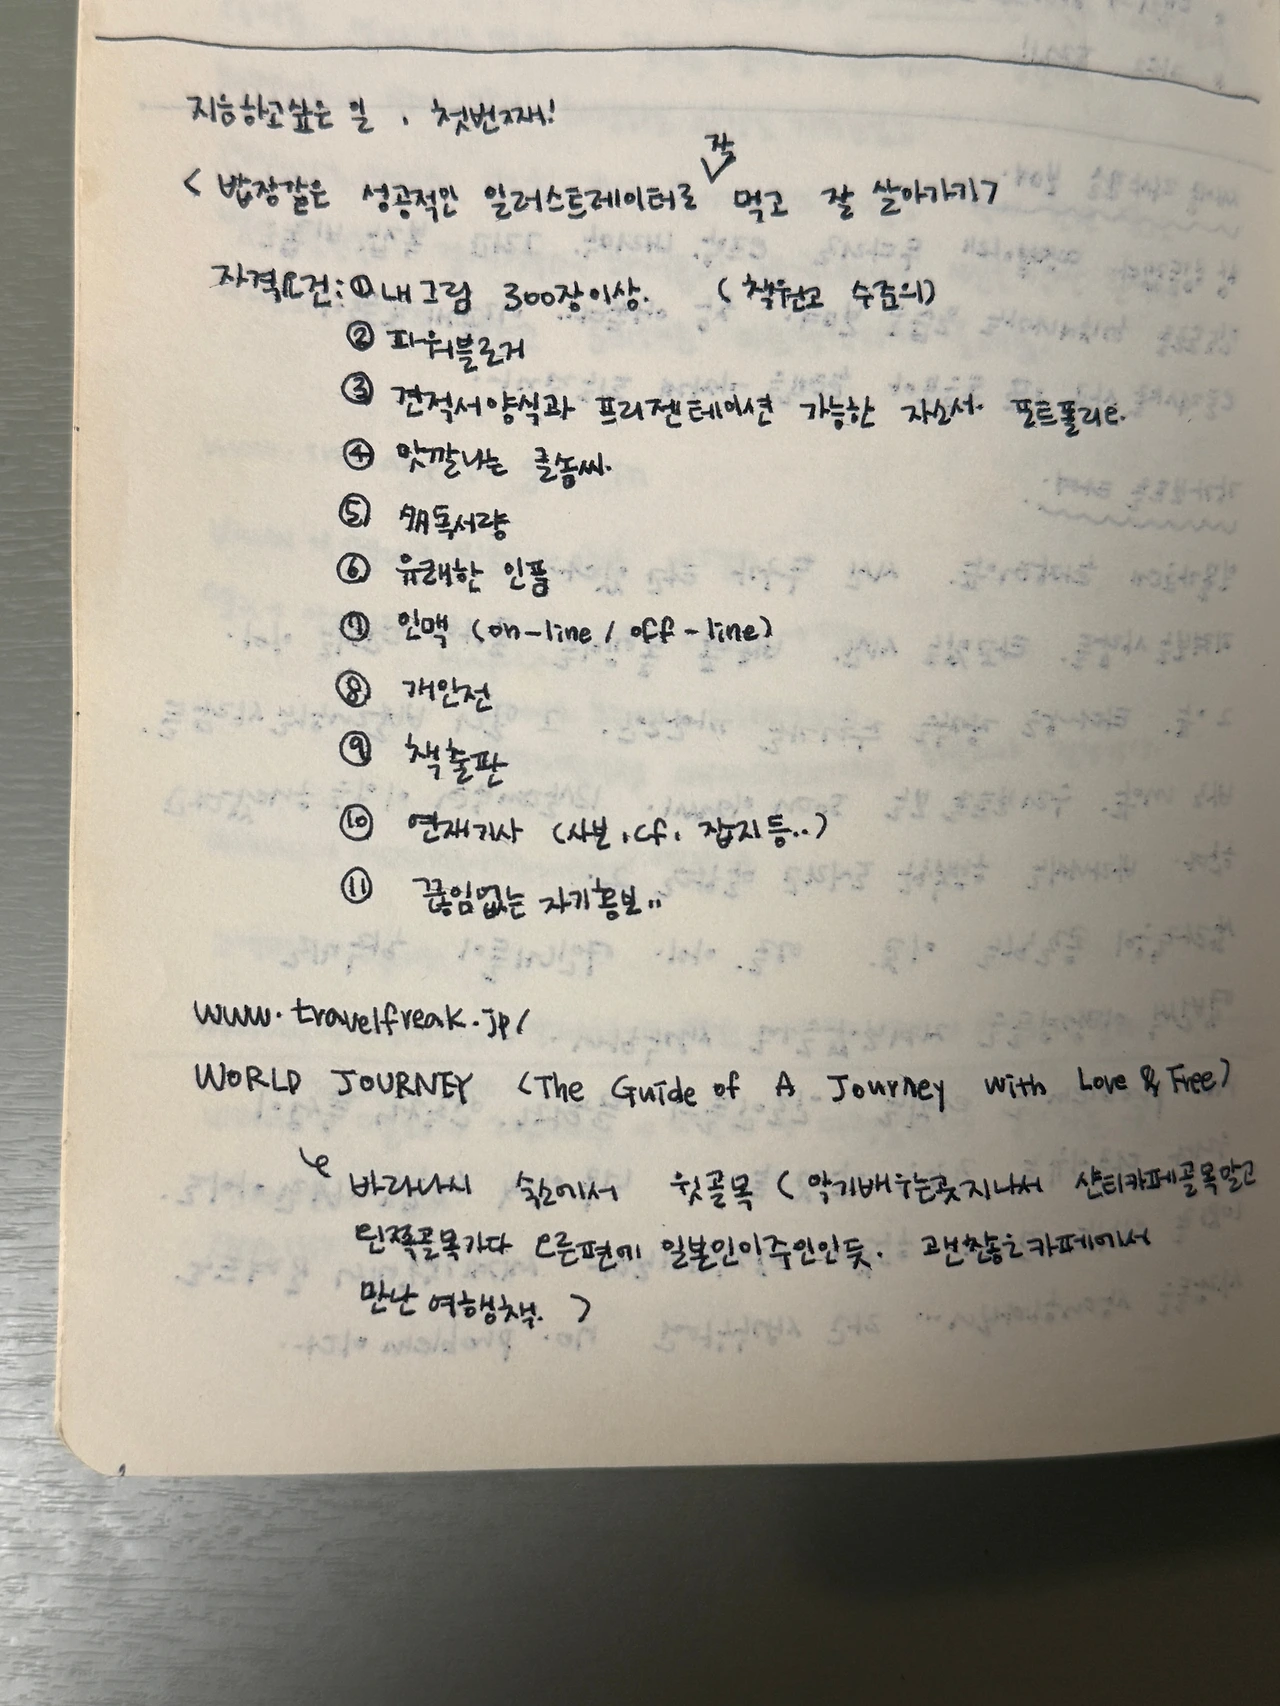 지금하고싶은 일, 첫번째!
< 밥장같은 성공적인 일러스트레이터로 잘 먹고 잘 살아가기>
자격요건: ① 내그림 300장이상. (책원고 수준의)
② 파워블로거
③ 견적서양식과 프리젠테이션 가능한 자소서. 포트폴리오.
④ 맛깔나는 글솜씨.
⑤ 多독서량
⑥ 유쾌한 인품
⑦ 인맥 (on-line / off-line)
⑧ 개인전
⑨ 책출판
⑩ 연재기사 (사보, cf, 잡지등..)
⑪ 끊임없는 자기홍보..
www.travelfreak.jp/
WORLD JOURNEY (The Guide of A Journey with Love & Free)
바라나시 숙소에서 윗골목 (악기배우는곳지나서 샨티카페골목말고
왼쪽골목가다 오른편에 일본인이주인인듯. 괜찮은카페에서
만난 여행책. )